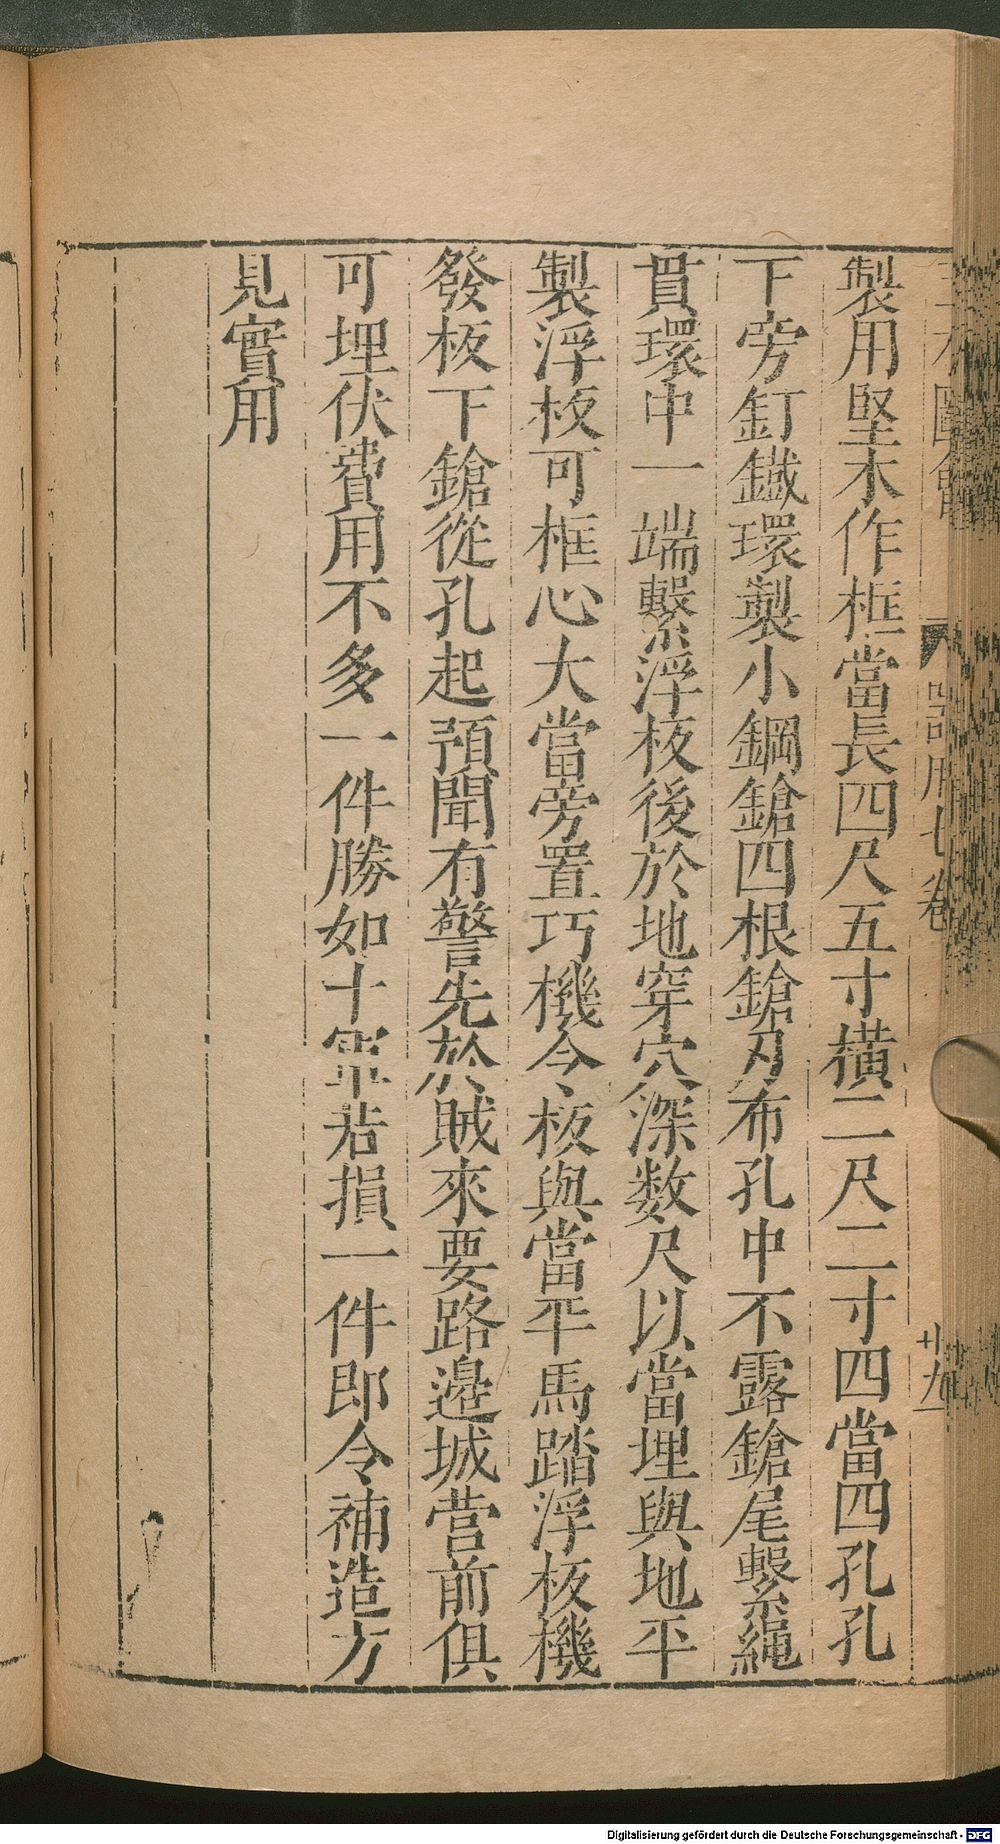 製用堅木作框當長四尺五寸橫二尺二寸四當四孔孔
下旁釘鐵環製小鋼鎗四根鎗刃布孔中不露鎗尾繫繩
貫環中一端繫浮板後於地穿穴深数尺以當埋與地平
製浮板可框心大當旁置巧機令板與當平馬踏浮板機
發板下鎗從孔起預聞有警先於賊來要路邊城营前俱
可埋伏費用不多一件勝如十軍若損一件即令補造方
見實用
卷
廿九
Digitalisierung gefördert durch die Deutsche Forschungsgemeinschaft - DFG